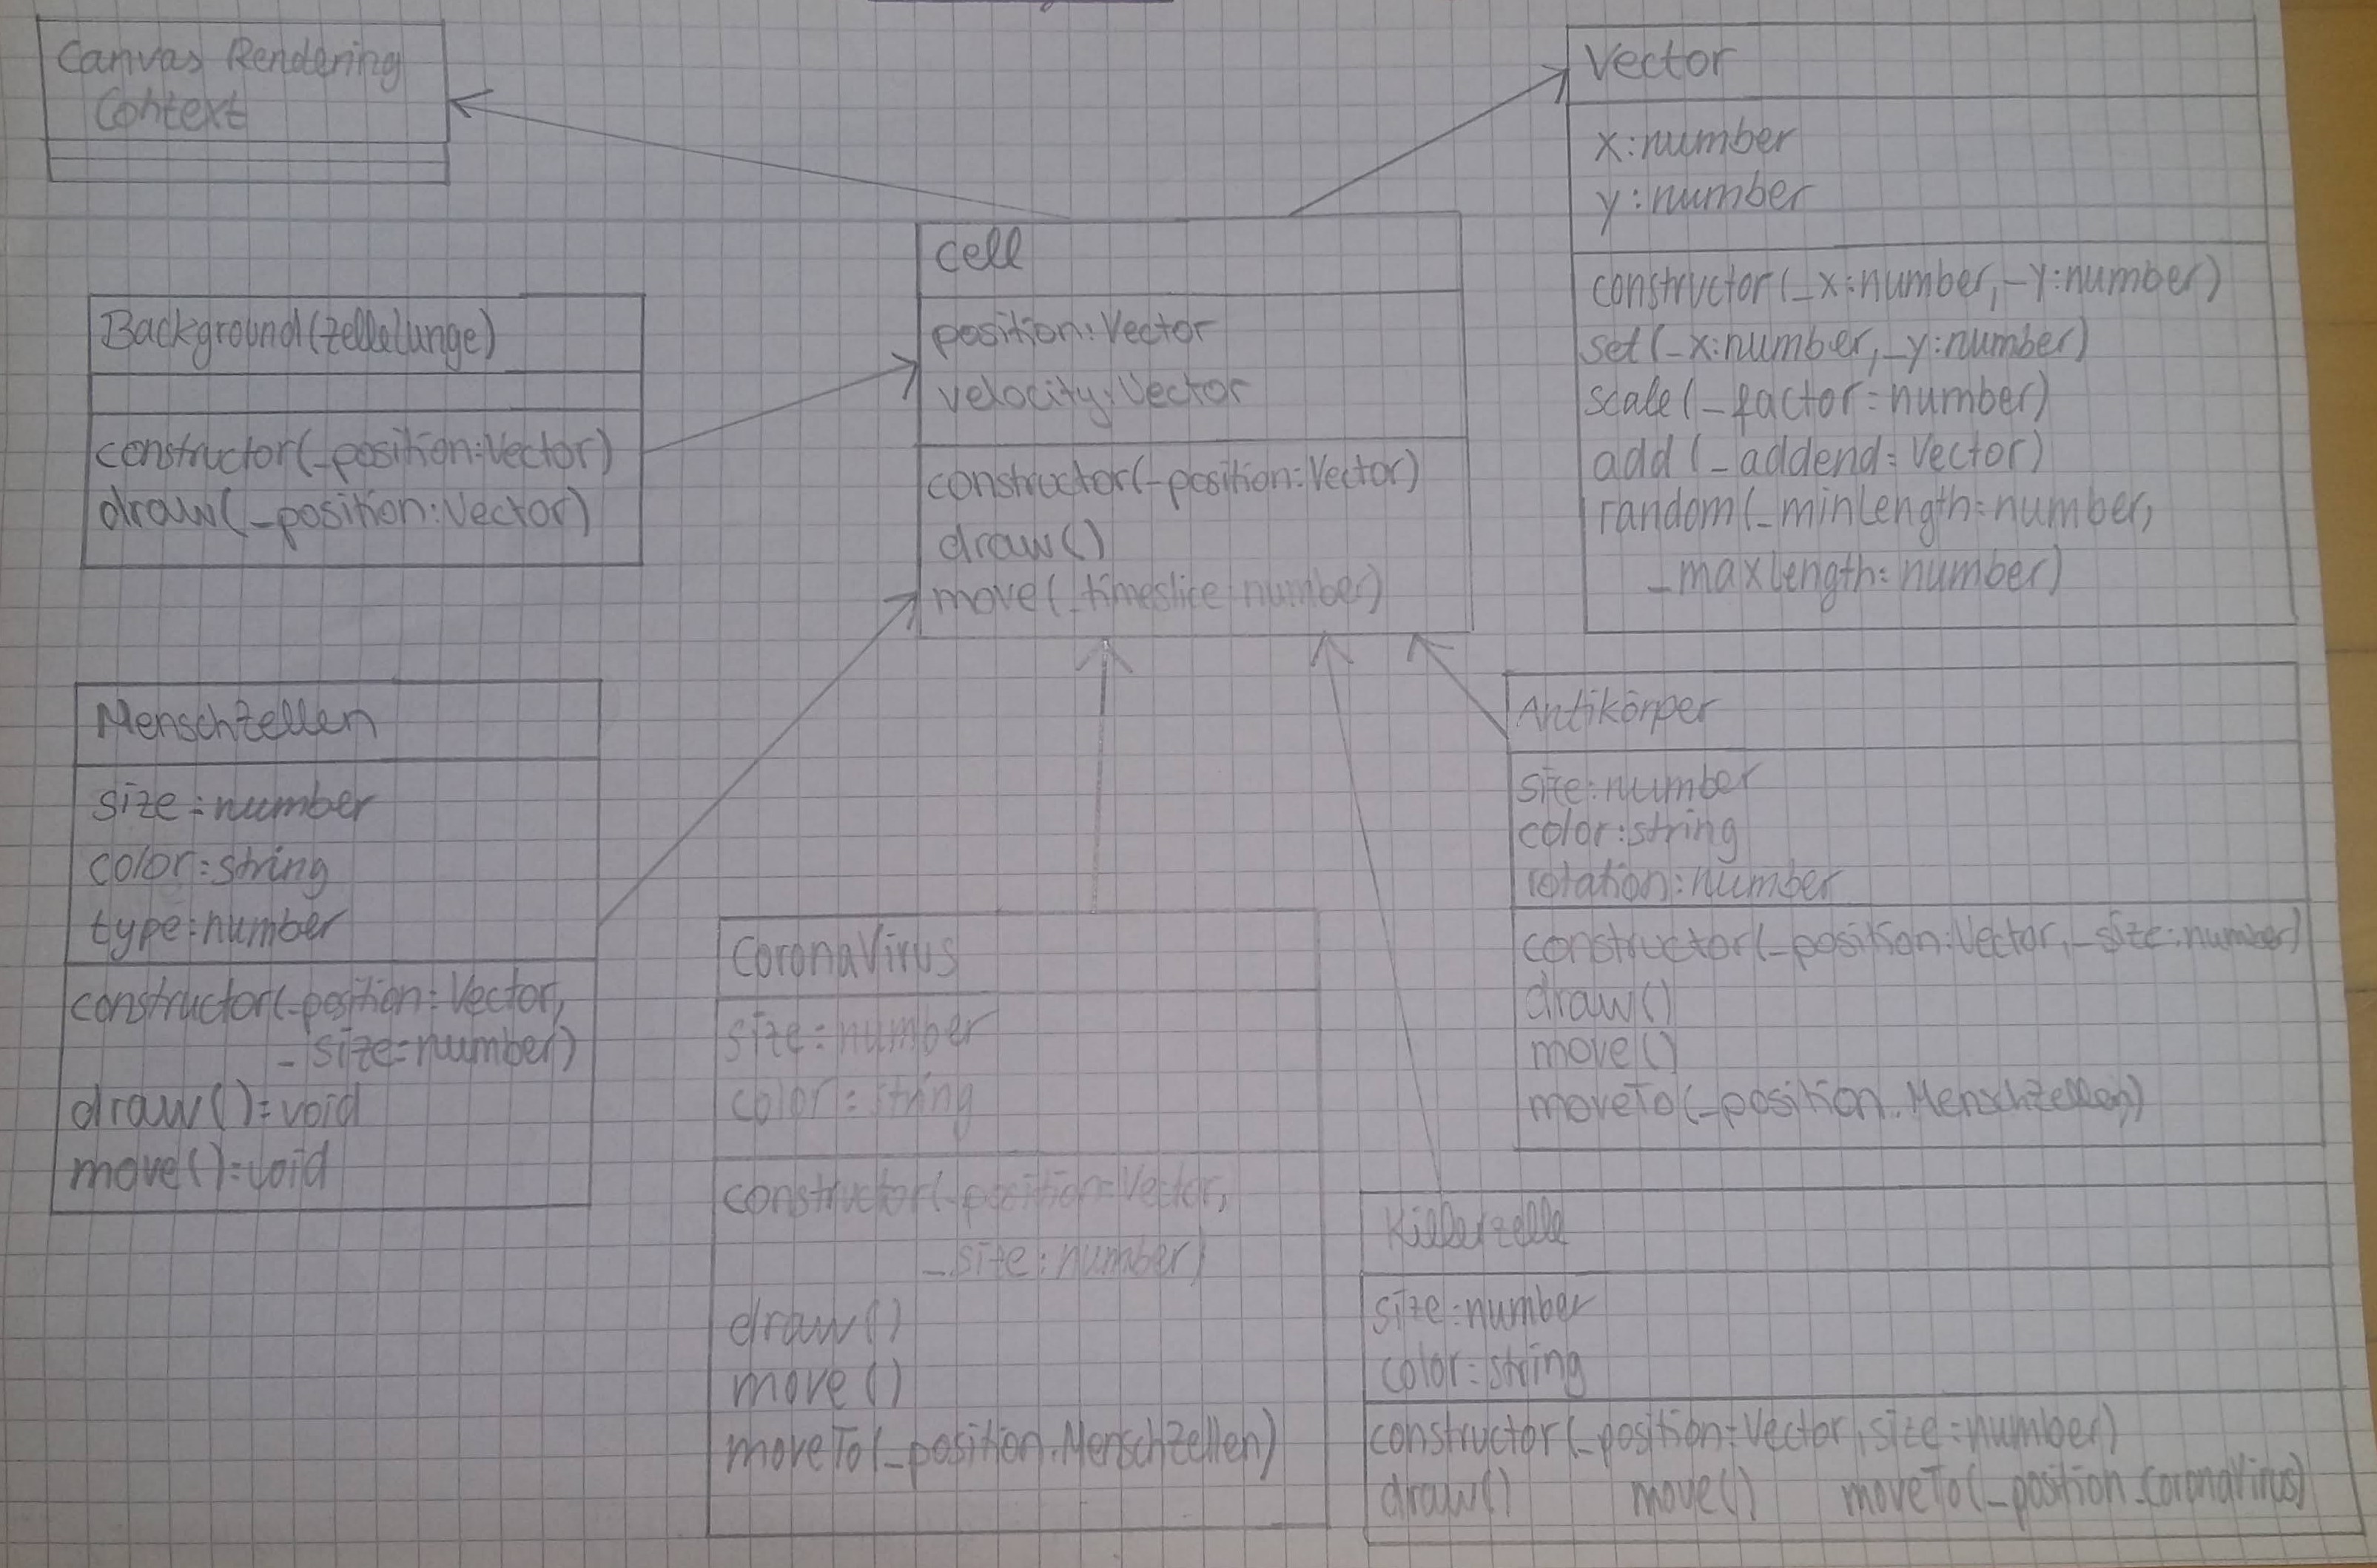 Canvas Rendering
Context
Vector
x:number
y:number
constructor(_x:number,_y:number)
set(_x:number,_y:number)
scale(_factor:number)
add(_addend:Vector)
random(_minLength:number,
_maxLength:number)
cell
position:Vector
velocity:Vector
constructor(_position:Vector)
draw()
move(_timeslice:number)
Background(ZelleLunge)
constructor(_position:Vector)
draw(_position:Vector)
MenschZellen
size:number
color:string
type:number
constructor(_position:Vector,
_size:number)
draw():void
move():void
CoronaVirus
size:number
color:string
constructor(_position:Vector,
_size:number)
draw()
move()
moveTo(_position.MenschZellen)
Antikörper
size:number
color:string
rotation:number
constructor(_position:Vector,_size:number)
draw()
move()
moveTo(_position.MenschZellen)
Killerzelle
size:number
color:string
constructor(_position:Vector,size:number)
draw() move() moveTo(_position.CoronaVirus)